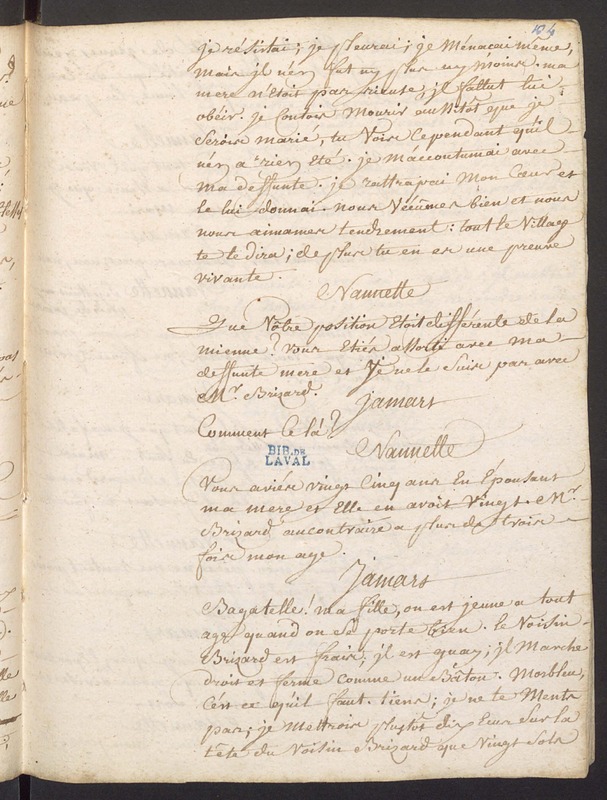 104
je résistai; je pleurai; je Ménacai même,
mais il n'en fut ny plus ny moins. ma
mere n'Etoit pas rieuse, il fallut lui
obéir. je Contois Mourir aussitôt que je
Serois marié, tu Vois Cependant qu'il
n'en a rien Eté. je m'accoutumai avec
ma deffunte. je rattrapai Mon Cœur et
le lui donnai. nous Vécûmes bien et nous
nous aimames tendrement: tout le Village
te le dira; de plus tu en es une preuve
vivante.
Nannette
Que Votre position Etoit différente de la
mienne? vous Etiés assorti avec ma
deffunte mere et Je ne le Suis pas avec
Mr. Brizard.
jamars
Comment Ce là?
BIB. DE
LAVAL
Nannette
Vous aviés vingt Cinq ans En Epousant
ma mere et Elle en avoit Vingt. Mr.
Brizard au contraire a plus de trois
fois mon age.
jamars
Bagatelle! ma fille, on est jeune a tout
age quand on se porte bien. le Voisin
Brizard est frais, il est guay, il Marche
droit et ferme comme un Bâton. Morbleu,
C'est ce qu'il faut. tiens; je ne te Ments
pas; je Mettrois plustôt dix Ecus Sur la
tête du Voisin Brizard que Vingt Sols